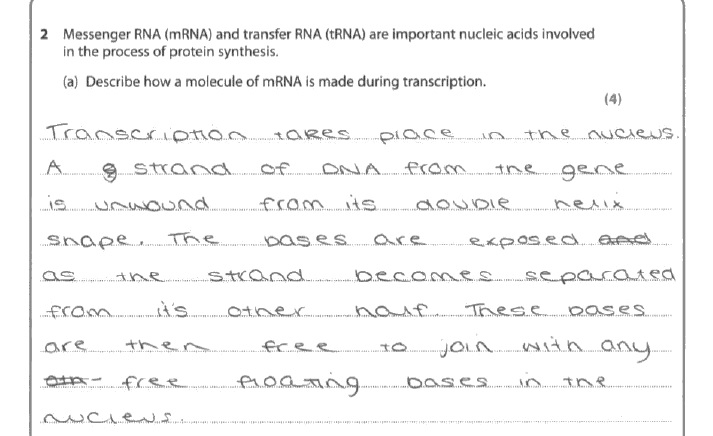 2 Messenger RNA (mRNA) and transfer RNA (tRNA) are important nucleic acids involved
in the process of protein synthesis.
(a) Describe how a molecule of mRNA is made during transcription.
(4)
Transcription takes place in the nucleus.
A strand of DNA from the gene
is unwound from its double helix
shape. The bases are exposed and
as the strand becomes separated
from it's other half. These bases
are then free to join with any
free floating bases in the
nucleus.